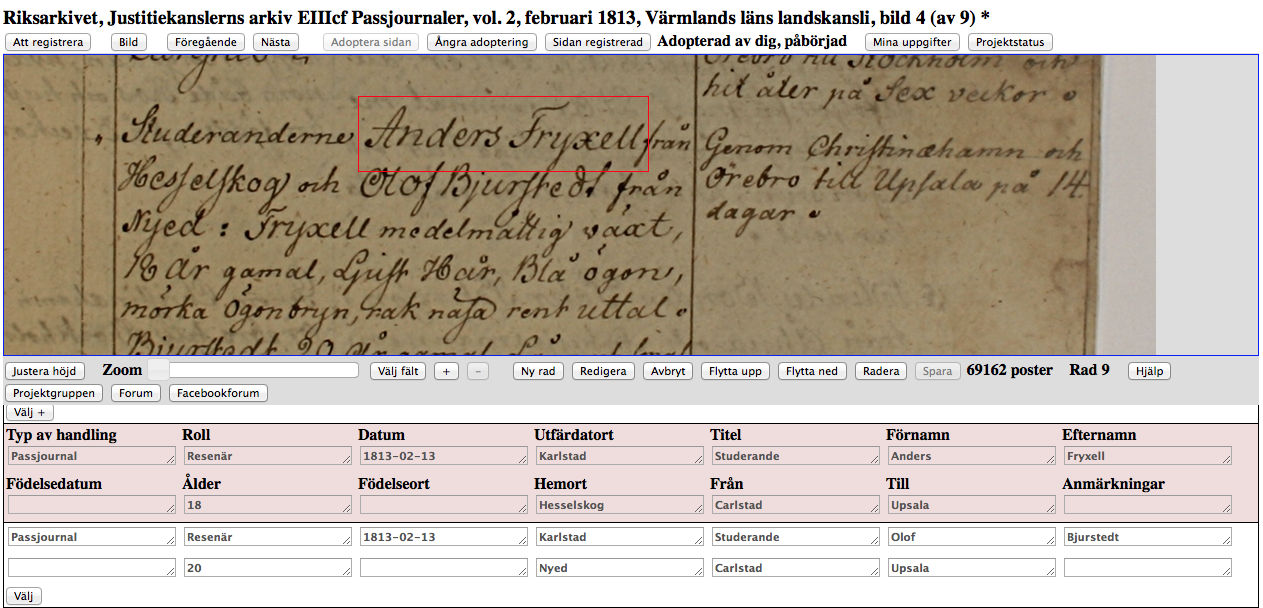 Riksarkivet, Justitiekanslerns arkiv EIIIcf Passjournaler, vol. 2, februari 1813, Värmlands läns landskansli, bild 4 (av 9) *
Att registrera Bild Föregående Nästa Adoptera sidan Ångra adoptering Sidan registrerad Adopterad av dig, påbörjad Mina uppgifter Projektstatus
Örebro till Stockholm och
hit åter på Sex veckor
Studeranderne Anders Fryxell från
Hesselskog och Olof Bjurstedt från
Nyed : Fryxell medelmåttig växt,
18 År gamal, Ljust Hår, Blå ögon,
mörka Ögonbryn, rak näsa rent uttal
Bjurstedt 20 År gamal
Genom Christinæhamn och
Örebro till Upsala på 14
dagar
Justera höjd Zoom Välj fält + - Ny rad Redigera Avbryt Flytta upp Flytta ned Radera Spara 69162 poster Rad 9 Hjälp
Projektgruppen Forum Facebookforum
Välj +
Typ av handling Roll Datum Utfärdatort Titel Förnamn Efternamn
Passjournal Resenär 1813-02-13 Karlstad Studerande Anders Fryxell
Födelsedatum Ålder Födelseort Hemort Från Till Anmärkningar
18 Hesselskog Carlstad Upsala
Passjournal Resenär 1813-02-13 Karlstad Studerande Olof Bjurstedt
20 Nyed Carlstad Upsala
Välj